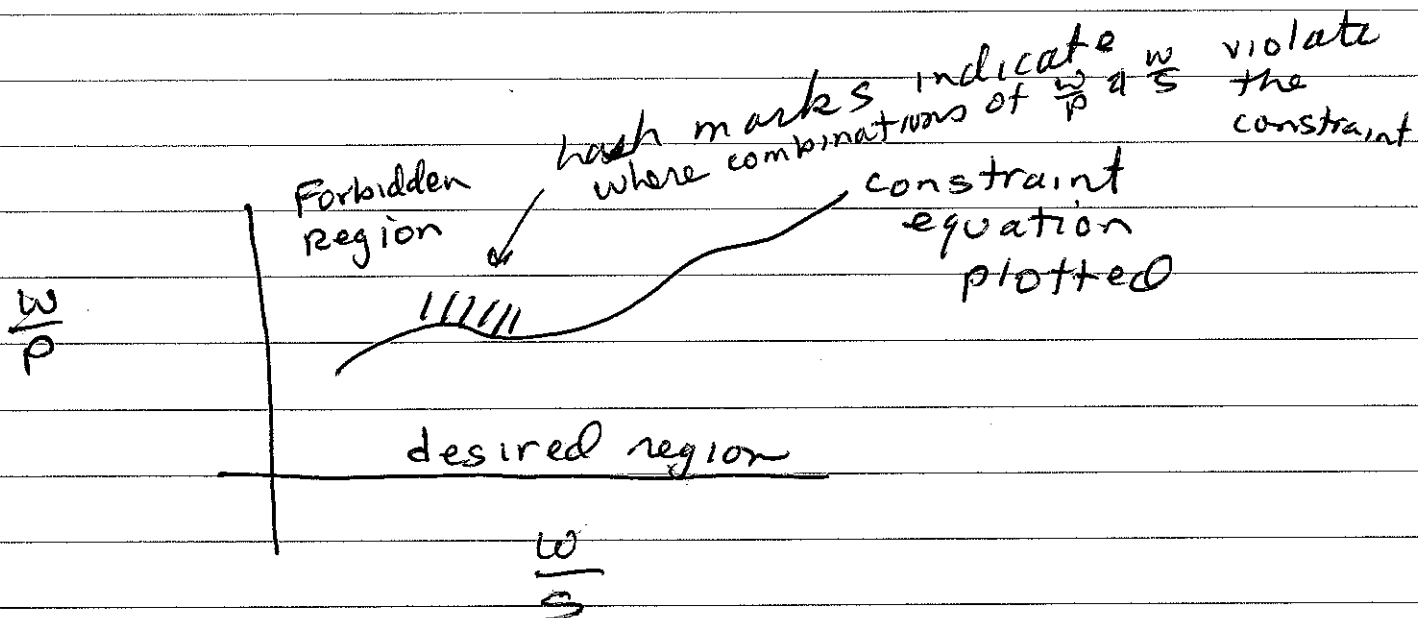 hash marks indicate
where combinations of w/p & w/s violate
the
constraint
Forbidden
Region
constraint
equation
plotted
w/p
desired region
w/s